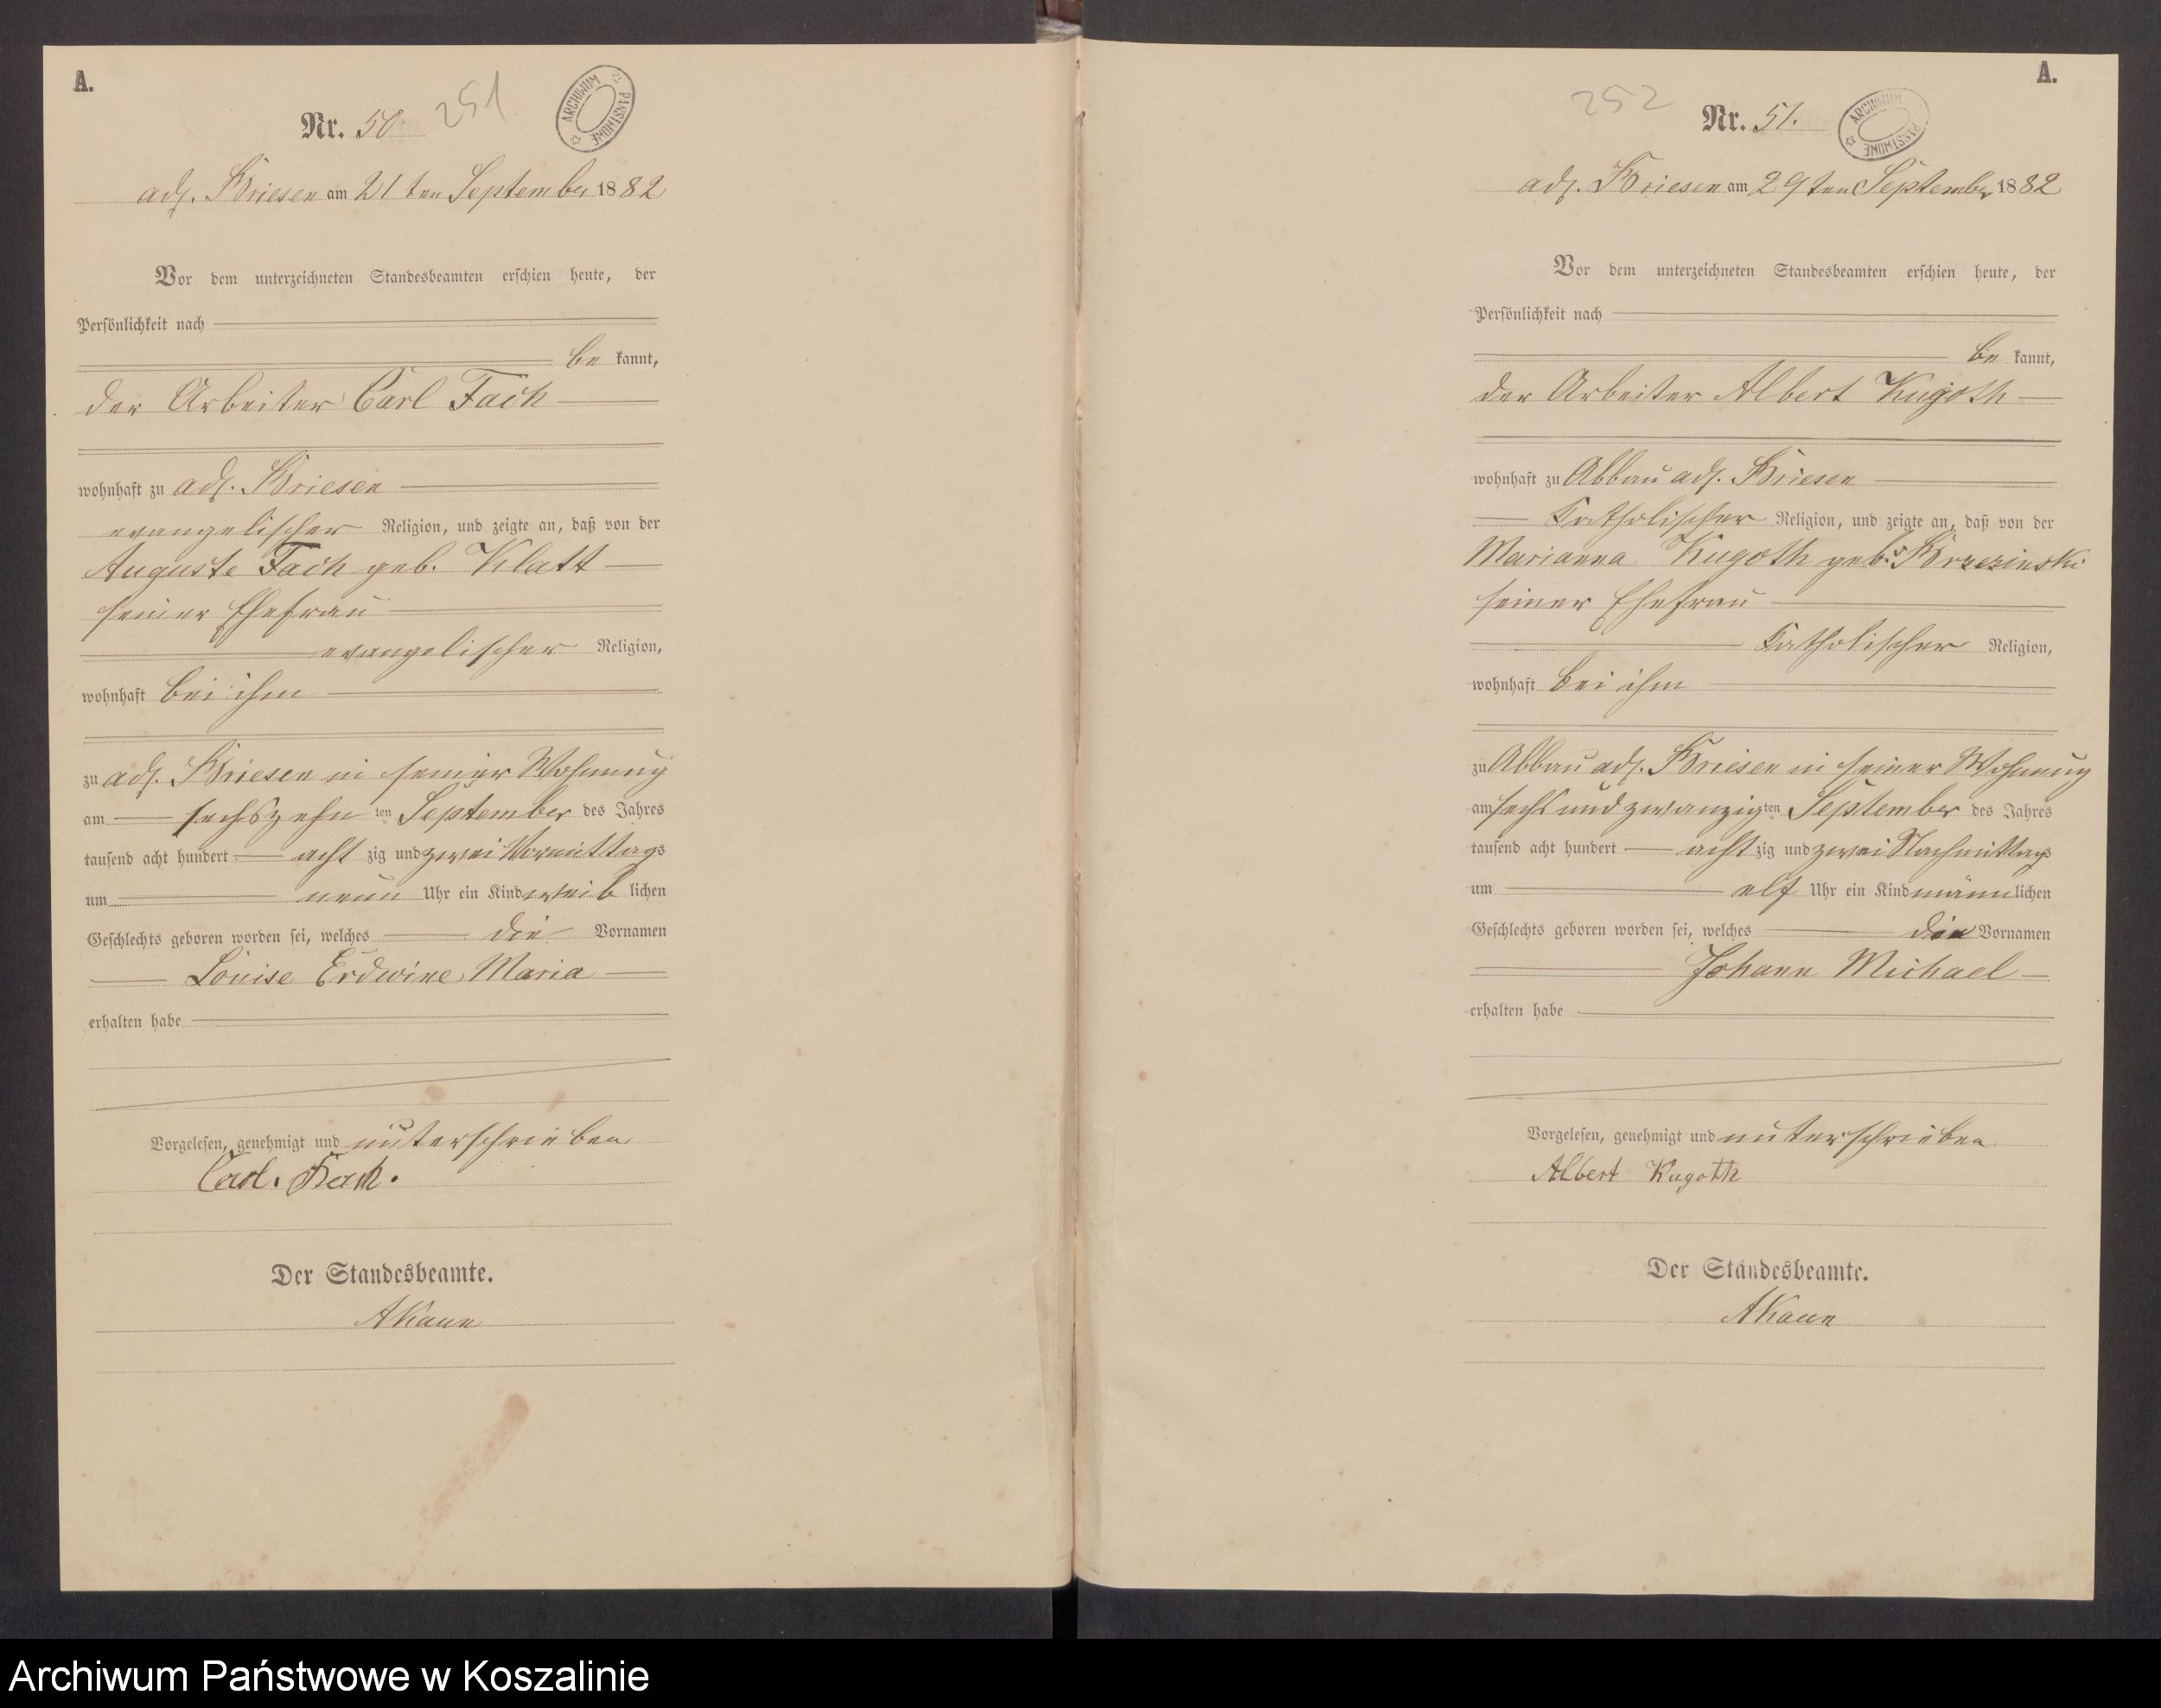 A.
Nr. 50
251
ARCHIWUM PAŃSTWOWE
adl. Briesen am 21ten September 1882
Vor dem unterzeichneten Standesbeamten erschien heute, der
Persönlichkeit nach
be kannt,
der Arbeiter Carl Fach
wohnhaft zu adl. Briesen
evangelischer Religion, und zeigte an, daß von der
Auguste Fach geb. Klatt
seiner Ehefrau
evangelischer Religion,
wohnhaft bei ihm
zu adl. Briesen in seiner Wohnung
am sechszehn ten September des Jahres
tausend acht hundert acht zig und zwei Vormittags
um neun Uhr ein Kind weib lichen
Geschlechts geboren worden sei, welches die Vornamen
Louise Erdwine Maria
erhalten habe
Vorgelesen, genehmigt und unterschrieben
Carl. Fach.
Der Standesbeamte.
AKaun
A.
252
Nr. 51.
ARCHIWUM PAŃSTWOWE
adl. Briesen am 29ten September 1882
Vor dem unterzeichneten Standesbeamten erschien heute, der
Persönlichkeit nach
be kannt,
der Arbeiter Albert Kugoth
wohnhaft zu Abbau adl. Briesen
Katholischer Religion, und zeigte an, daß von der
Marianna Kugoth geb. v Brzezinski
seiner Ehefrau
Katholischer Religion,
wohnhaft bei ihm
zu Abbau adl. Briesen in seiner Wohnung
am sechs und zwanzig ten September des Jahres
tausend acht hundert acht zig und zwei Nachmittags
um elf Uhr ein Kind männ lichen
Geschlechts geboren worden sei, welches die Vornamen
Johann Michael
erhalten habe
Vorgelesen, genehmigt und unterschrieben
Albert Kugoth
Der Standesbeamte.
AKaun
Archiwum Państwowe w Koszalinie